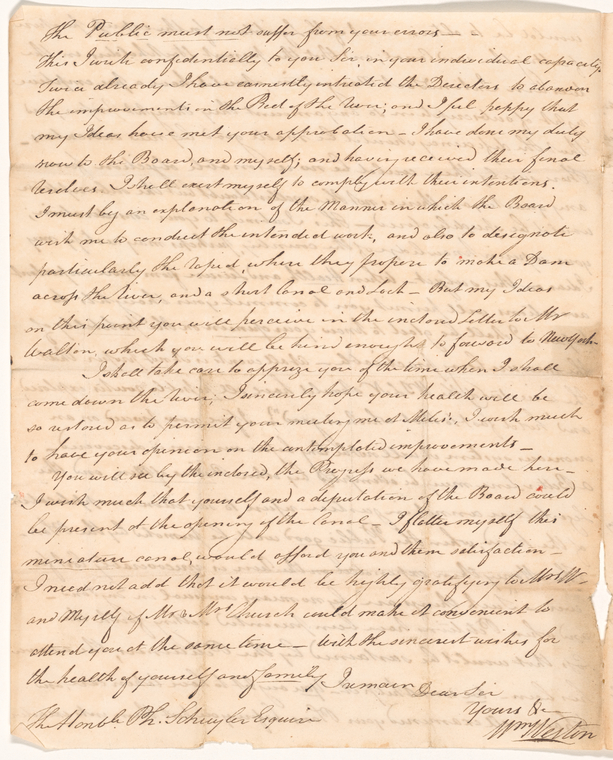 the Public must not suffer from your errors —
This I write confidentially to you Sir, in your individual capacity,
Twice already I have earnestly intreated the Directors to abandon
the improvements in the Bed of the River; and I feel happy that
my Ideas have met your approbation — I have done my duty
now to the Board, and myself; and having received their final
resolves I shall exert myself to comply with their intentions.
I must beg an explanation of the Manner in which the Board
wish me to conduct the intended work, and also to designate
particularly the rapid, where they propose to make a Dam
across the River, and a short Canal and Lock — But my Ideas
on this point you will perceive in the inclosed Letter to Mr
Walton, which you will be kind enough to forward to New York —
I shall take care to apprize you of the time when I shall
come down the River; I sincerely hope your health will be
so restored as to permit your meeting me at, I wish much
to have your opinion on the contemplated improvements —
You will see by the inclosed, the Progress we have made here —
I wish much that yourself and a deputation of the Board could
be present at the opening of the Canal — I flatter myself this
miniature canal, would afford you and them satisfaction —
I need not add that it would be highly gratifying to Mrs W—
and Myself if Mr & Mrs Church could make it convenient to
attend you at the same time — With the sincerest wishes for
the health of yourself and family I remain Dear Sir
Yours &c
Wm Weston
The Honble. Ph. Schuyler Esquire